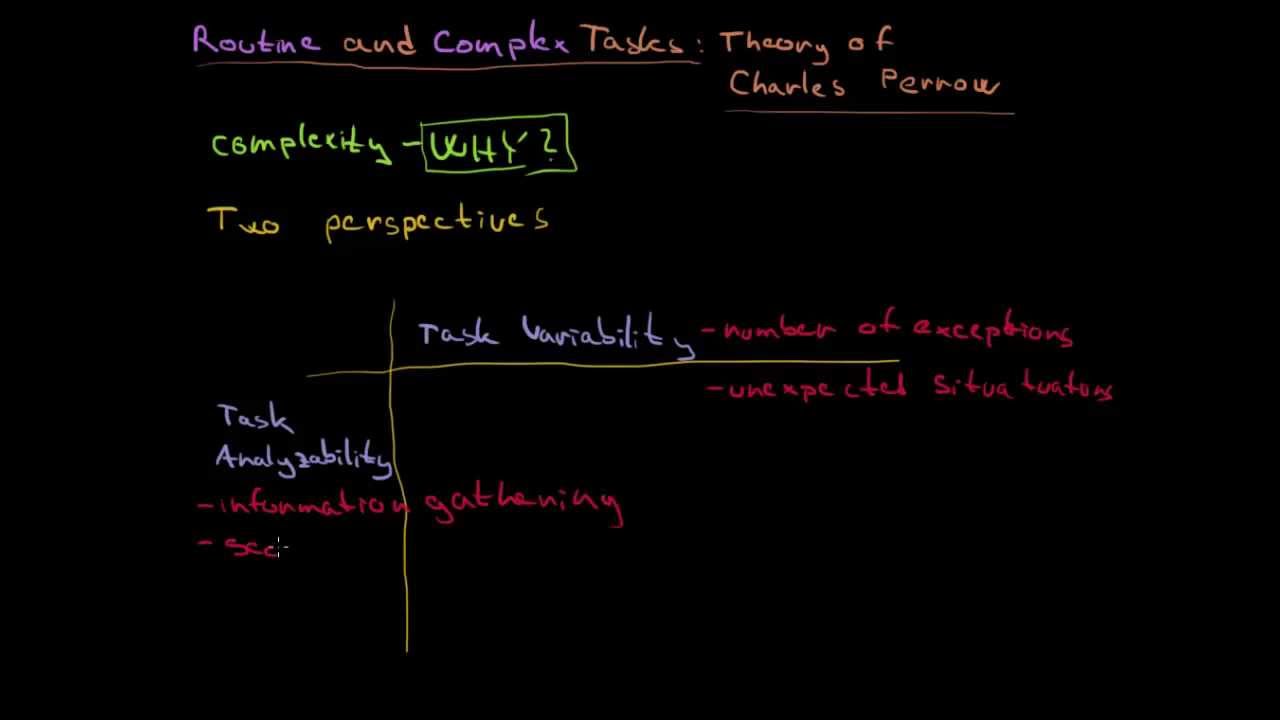 Routine and Complex Tasks: Theory of
Charles Perrow
complexity - WHY?
Two perspectives
Task Variability - number of exceptions
- unexpected situatuations
Task
Analyzability
- information gathering
-